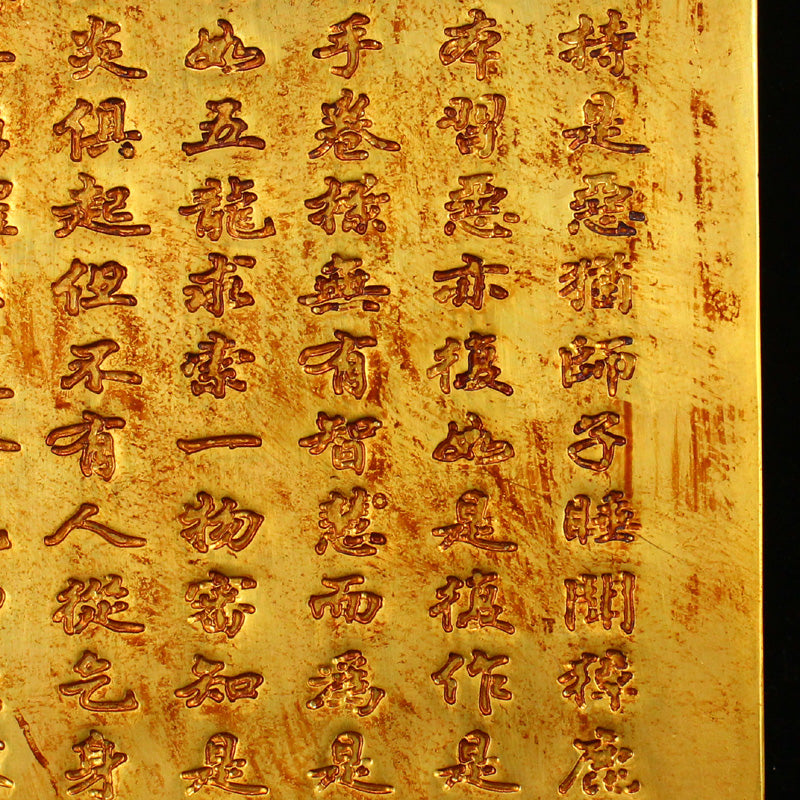 持是惡猶師子睡開稱鹿
本習惡亦復如是復作是
手卷樣無有智慧而為是
如五龍求索一物審知是
炎俱起但不有人從乞身